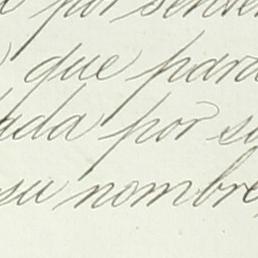 por senten
que para
ada por su
su nombre,